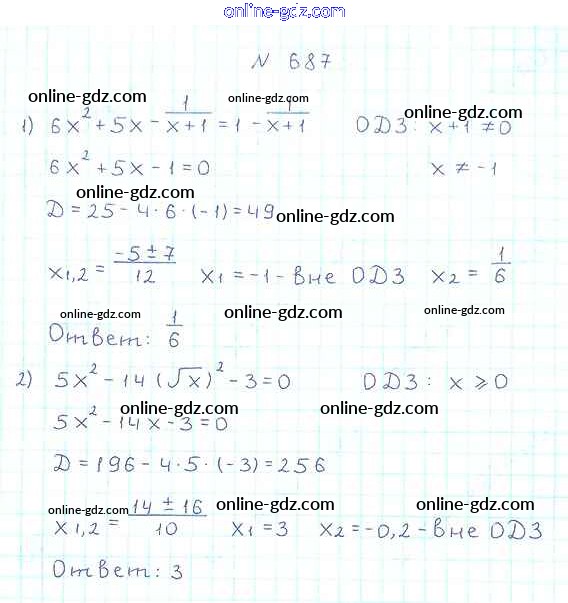 online-gdz.com
N 687
online-gdz.com online-gdz.com online-gdz.com
1) 6x² + 5x - 1/(x+1) = 1 - 1/(x+1) ОДЗ: x+1 ≠ 0
6x² + 5x - 1 = 0 x ≠ -1
online-gdz.com
D = 25 - 4·6·(-1) = 49 online-gdz.com
x1,2 = (-5 ± 7)/12 x1 = -1 - вне ОДЗ x2 = 1/6
online-gdz.com online-gdz.com online-gdz.com
Ответ: 1/6
2) 5x² - 14(√x)² - 3 = 0 ОДЗ: x ⩾ 0
online-gdz.com online-gdz.com
5x² - 14x - 3 = 0
D = 196 - 4·5·(-3) = 256
online-gdz.com online-gdz.com online-gdz.com
x1,2 = (14 ± 16)/10 x1 = 3 x2 = -0,2 - вне ОДЗ
Ответ: 3